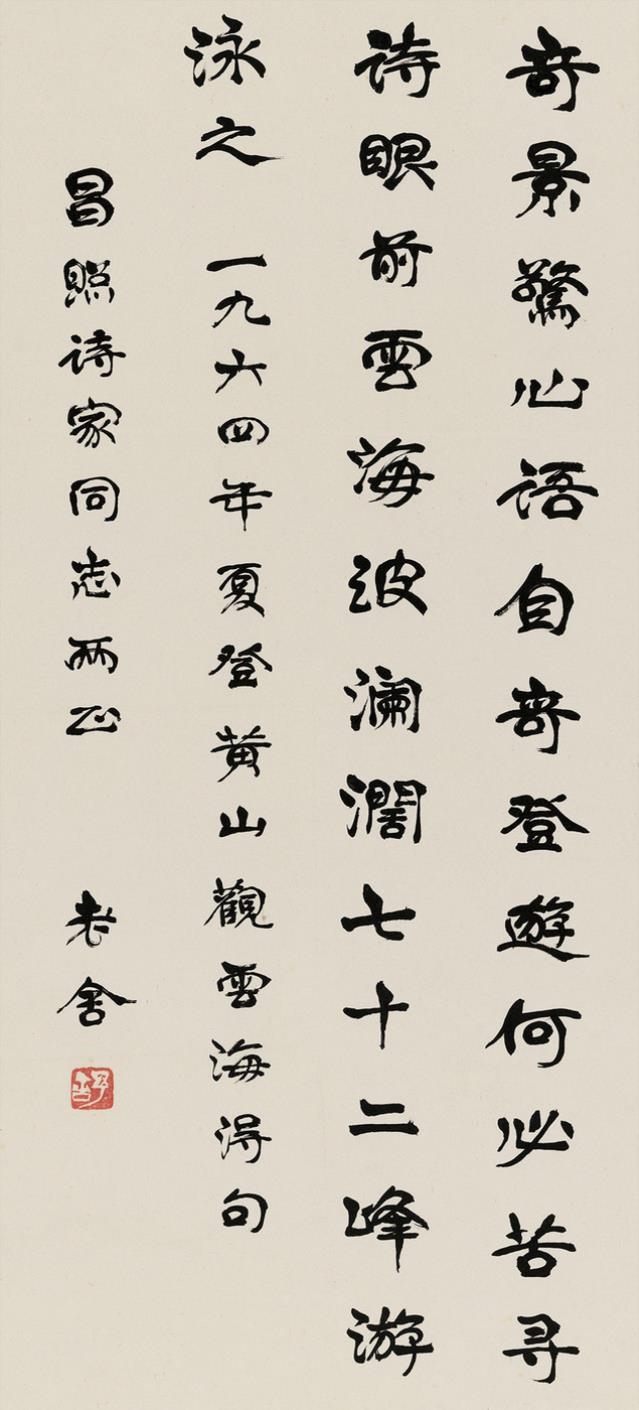 奇景驚心语自奇登遊何必苦寻
诗眼前雲海波澜濶七十二峰游
泳之 一九六四年夏登黄山觀雲海得句
昌照诗家同志两正 老舍
舒